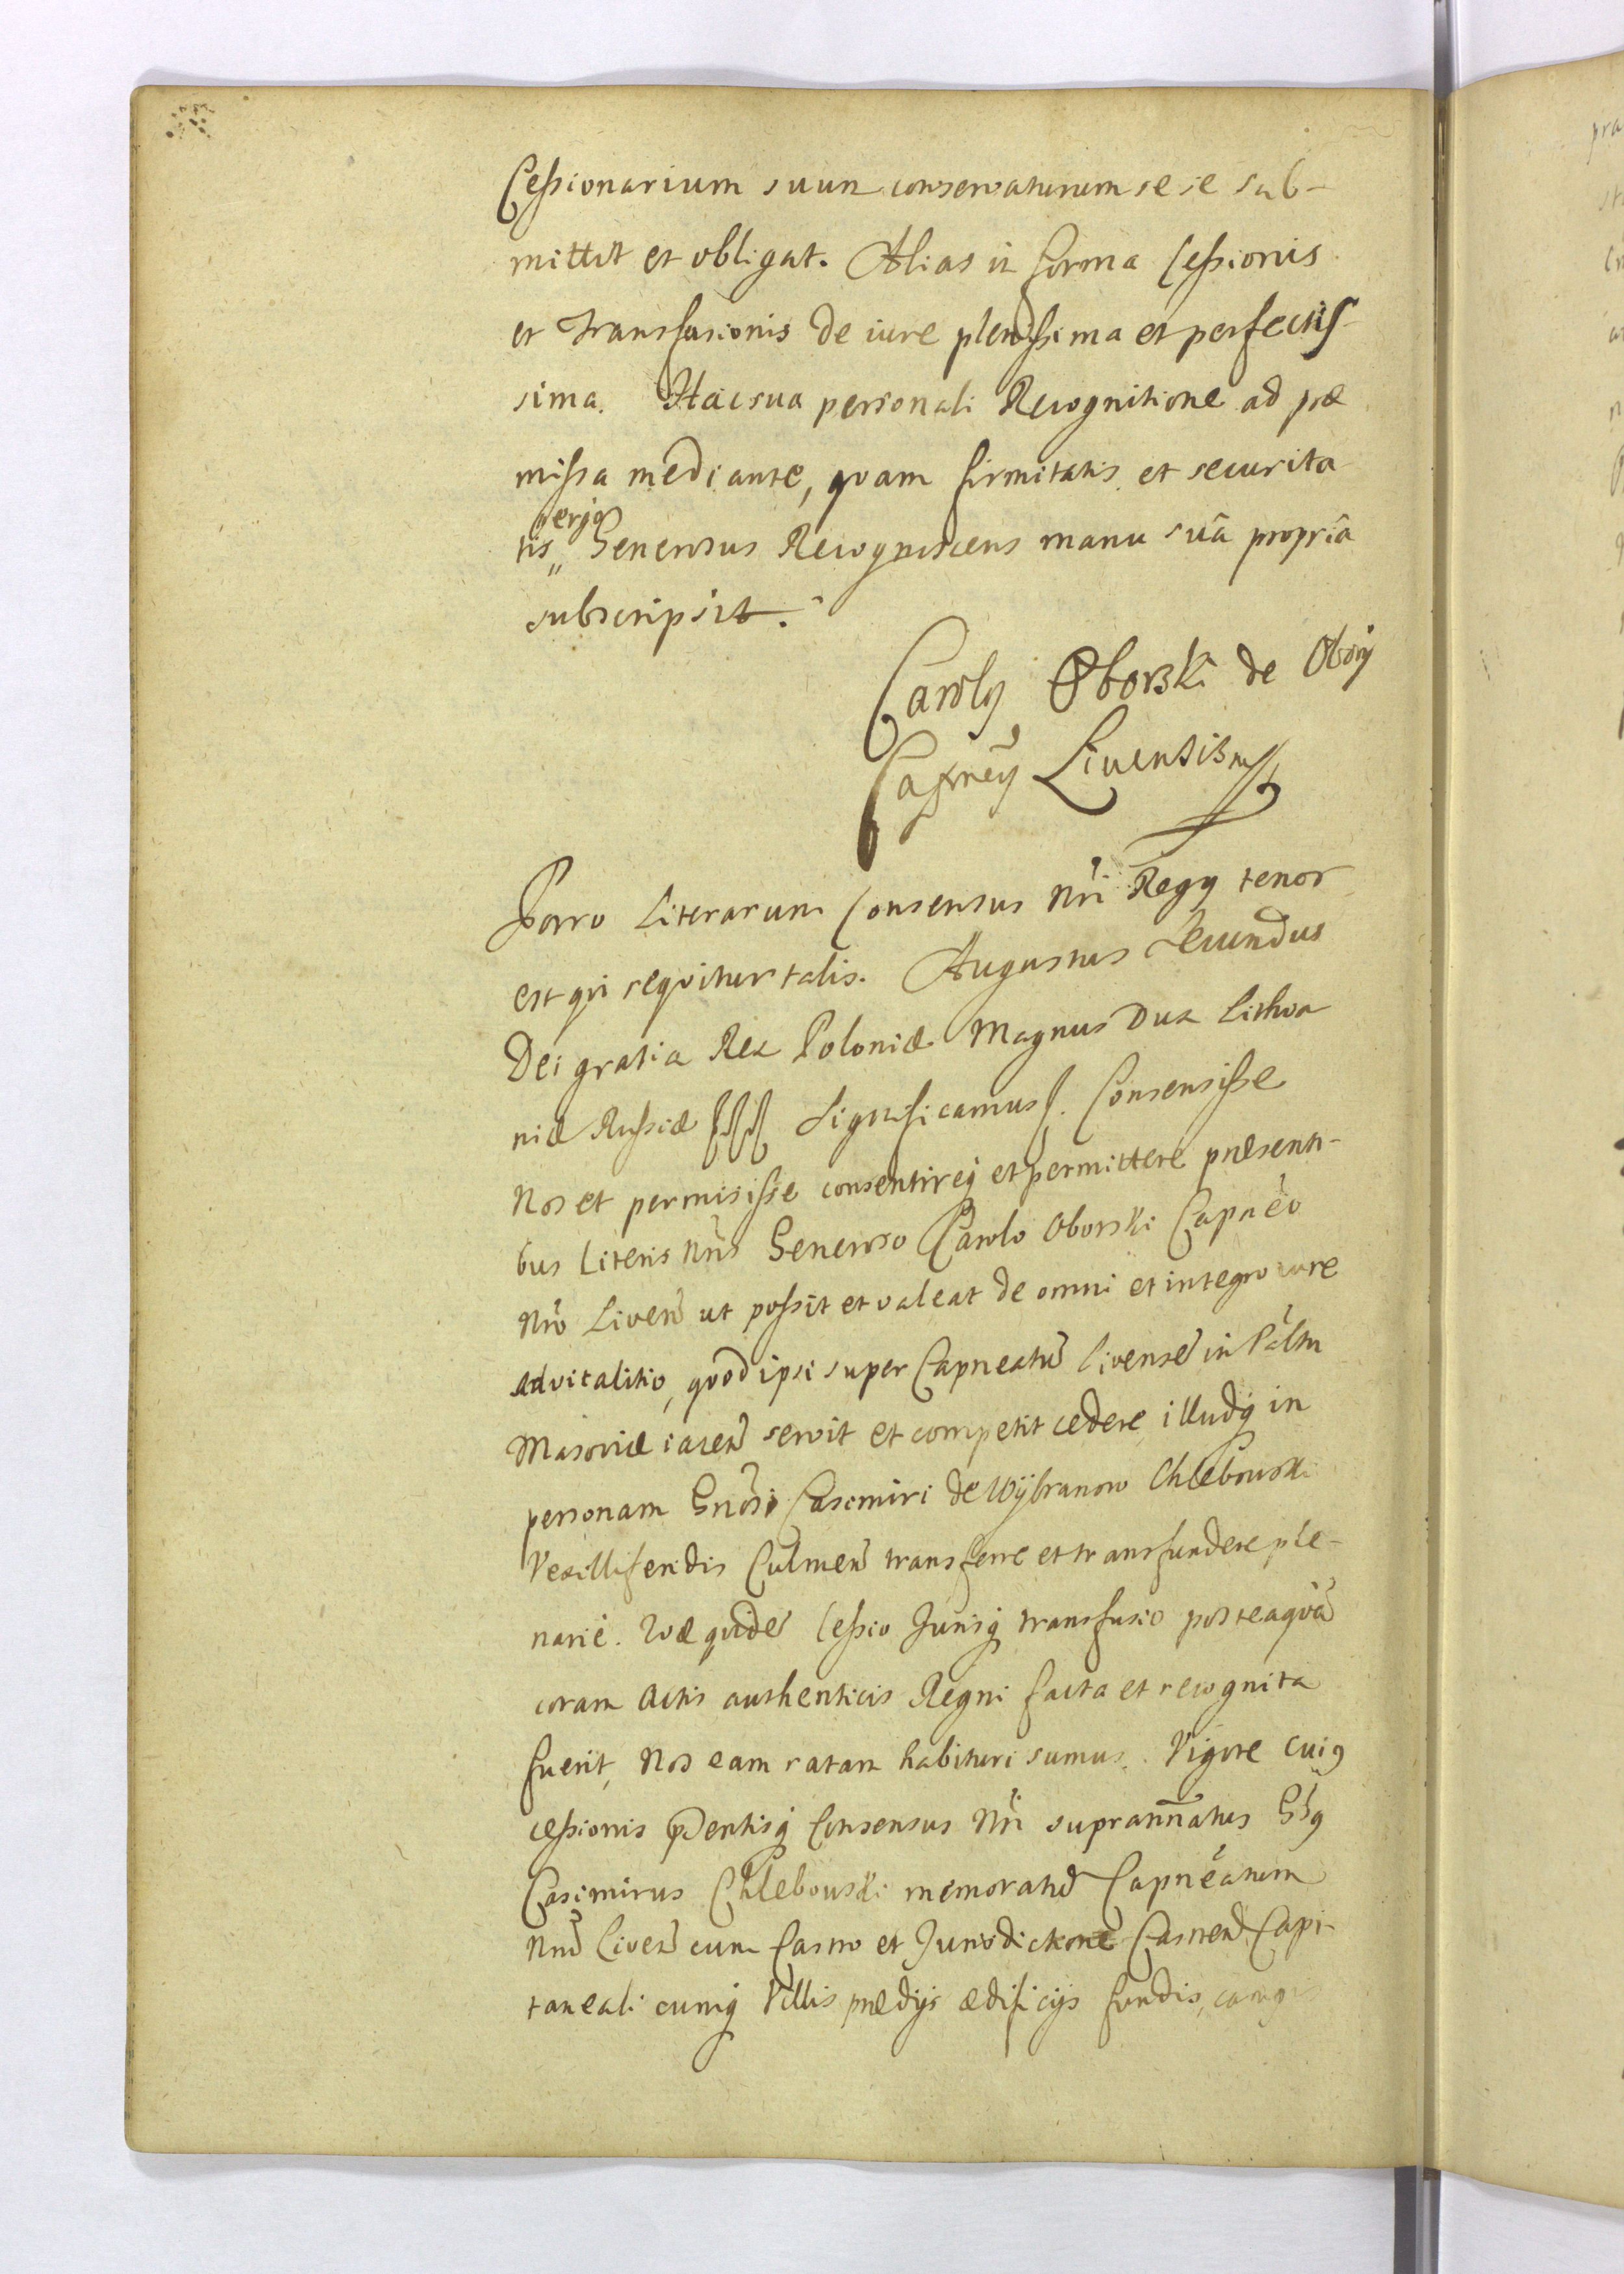 Cessionarium suum conservaturum sese sub-
mittit et obligat. Alias in forma Cessionis
et transfusionis de iure plenissima et perfectis-
sima. Hac sua personali Recognitione ad præ
missa mediante, quam firmitatis et securita
ergo
tis Generosus Recognoscens manu suâ propriâ
subscripsit.
Carolꝯ Oborski de Obory
Capneꝯ Livensis mp
Porro Literarum Consensus Nri Regij tenor
est qui sequitur talis. Augustus Secundus
Dei gratia Rex Poloniæ Magnus Dux Lithva
niæ Russiæ Significamus Consensisse
Nos et permisisse consentireq et permittere præsenti-
bus Literis Nris Generoso Carolo Oborski Capneo
Nro Liven ut possit et valeat de omni et integro iure
advitalitio, quod ipsi super Capneatu Livense in Paltu
Masoviæ iacen servit et competit cedere, illudq in
personam Gnosi Casimiri de Wybranow Chlebowski
Vexilliferidis Culmen transferre et transfundere ple-
narie. quide Cessio Jurisq transfusio posteaqva
coram Actis authenticis Regni facta et recognita
fuerit, Nos eam ratam habituri sumus. Vigore cuiꝯ
cessionis pntisq Consensus Nri suprannatus Gsꝯ
Casimirus Chlebowski memoratu Capneatum
Nru Liven cum Castro et Jurisdictione Castren Capi-
taneali cumq Villis prædijs ædificijs fundis, campis